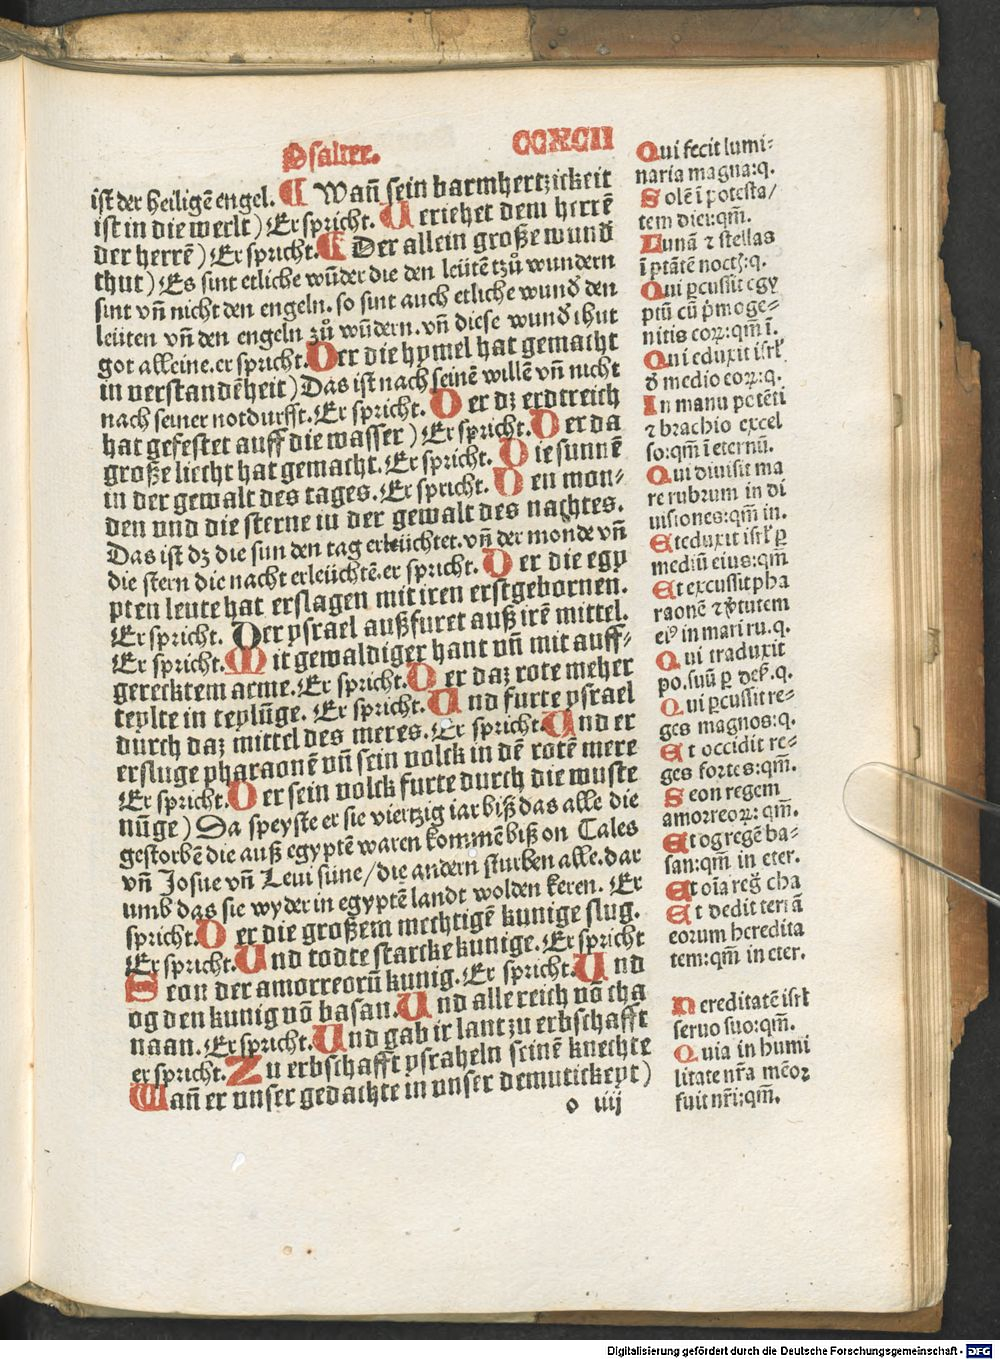 Psalter. CCXCII
ist der heiligē engel. ¶ Wañ sein barmhertzickeit
ist in die werlt) Er spricht. Veriehet dem herrē
der herrē) Er spricht. ¶ Der allein große wund̄
thut) Es sint etliche wūder die den leütē tzů wundern
sint vñ nicht den engeln. so sint auch etliche wund̄ den
leüten vñ den engeln zů wūdern. vñ diese wund̄ thut
got alleine. er spricht. Der die hymel hat gemacht
in verstandēheit) Das ist nach seinē willē vñ nicht
nach seiner notdurfft. Er spricht. Der dz erdtreich
hat gefestet auff die wasser) Er spricht. Der da
große liecht hat gemacht. Er spricht. Die sunnē
in der gewalt des tages. Er spricht. Den mon⸗
den vnd die sterne in der gewalt des nachtes.
Das ist dz die sun den tag erleüchtet. vñ der monde vñ
die stern die nacht erleüchtē. er spricht. Der die egy
pten leute hat erslagen mit iren erstgebornen.
Er spricht. Der ysrael außfuret auß irē mittel.
Er spricht. Mit gewaldiger hant vñ mit auff⸗
gerecktem arme. Er spricht. Der daz rote meher
teylte in teylūge. Er spricht. Und furte ysrael
durch daz mittel des meres. Er spricht. Und er
ersluge pharaonē vñ sein volck in dē rotē mere
Er spricht. Der sein volck furte durch die wuste
nūge) Da speyste er sie viertzig iar biß das alle die
gestorbē die auß egyptē waren kommē biß on Cales
vñ Josue vñ Levi süne / die andern sturben alle. dar
umb das sie wyder in egyptē landt wolden keren. Er
spricht. Der die großem mechtigē kunige slug.
Er spricht. Und todte starcke kunige. Er spricht
Seon der amorreorū kunig. Er spricht. Und
og den kunig vō basan. Und alle reich vō cha
naan. Er spricht. Und gab ir lant zu erbschafft
er spricht. Zu erbschafft ysraheln seinē knechte
Wañ er vnser gedachte in vnser demutickeyt)
o iiij
Qui fecit lumi⸗
naria magna: q.
Solē ī potesta/
tem diei: qm̄.
Lunā ⁊ stellas
ī ptātē noct: q.
Qui pcussit egy
ptū cū pmoge⸗
nitis coꝝ: qm̄ ī.
Qui eduxit isrł
đ medio eoꝝ: q.
In manu potēti
⁊ brachio excel
so: qm̄ ī eternū.
Qui diuisit ma
re rubrum in di
uisiones: qm̄ in.
Et eduxit isrł ꝑ
mediū eius: qm̄
Et excussit pha
raonē ⁊ v̓tutem
ei⁹ in mari ru. q.
Qui traduxit
po. suū ꝑ des. q.
Qui pcussit re⸗
ges magnos: q.
Et occidit re⸗
ges fortes: qm̄.
Seon regem
amorreoꝝ: qm̄.
Et og regē ba⸗
san: qm̄ in eter.
Et oīa reg̃ cha
Et dedit terrā
eorum heredita
tem: qm̄ in eter.
Hereditatē isrł
seruo suo: qm̄.
Quia in humi
litate nr̄a mēoꝝ
fuit nr̄i: qm̄.
Digitalisierung gefördert durch die Deutsche Forschungsgemeinschaft - DFG